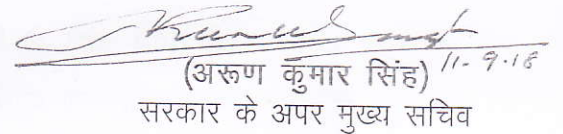 (अरूण कुमार सिंह) 11-9-18
सरकार के अपर मुख्य सचिव